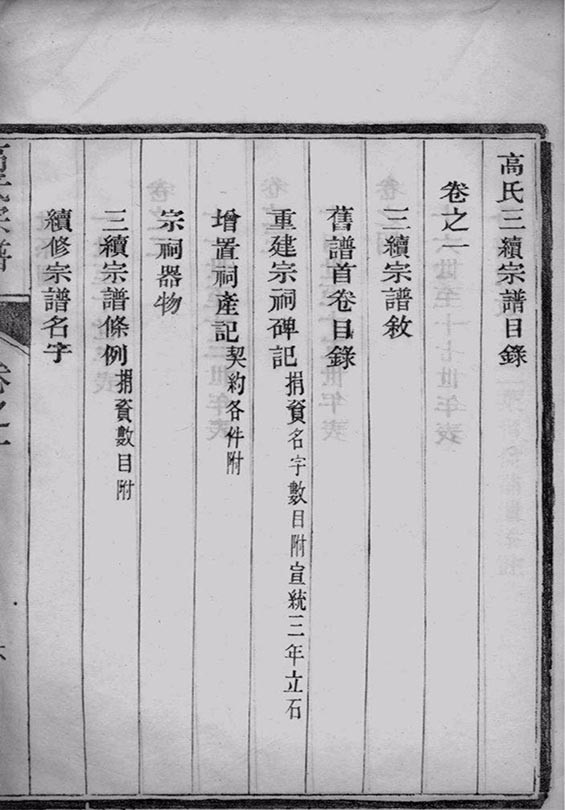 高氏三續宗譜目錄
卷之一
三續宗譜敘
舊譜首卷目錄
重建宗祠碑記捐資名字數目附宣統三年立石
增置祠產記契約各件附
宗祠器物
三續宗譜條例捐資數目附
續修宗譜名字
高氏宗譜
卷之一